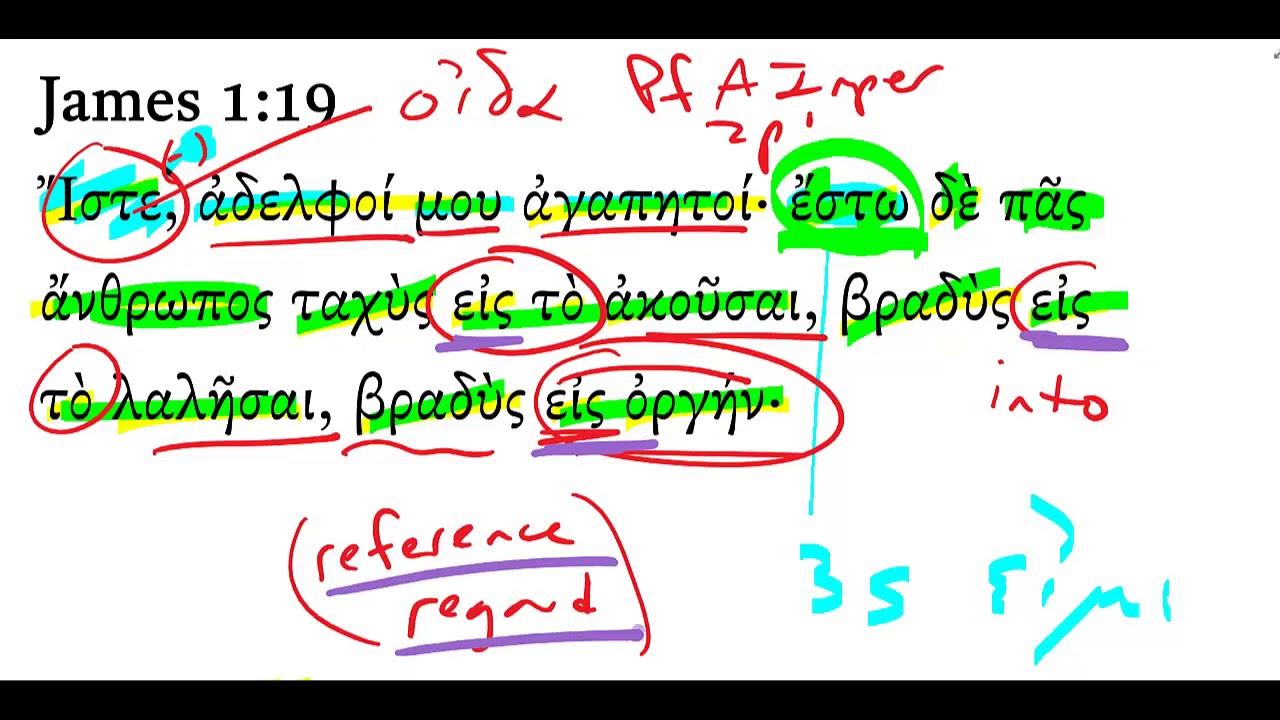 James 1:19 οἶδα Pf A Imper
2p
(-)
Ἴστε, ἀδελφοί μου ἀγαπητοί· ἔστω δὲ πᾶς
ἄνθρωπος ταχὺς εἰς τὸ ἀκοῦσαι, βραδὺς εἰς
τὸ λαλῆσαι, βραδὺς εἰς ὀργήν·
into
(reference
regard)
3s εἰμι